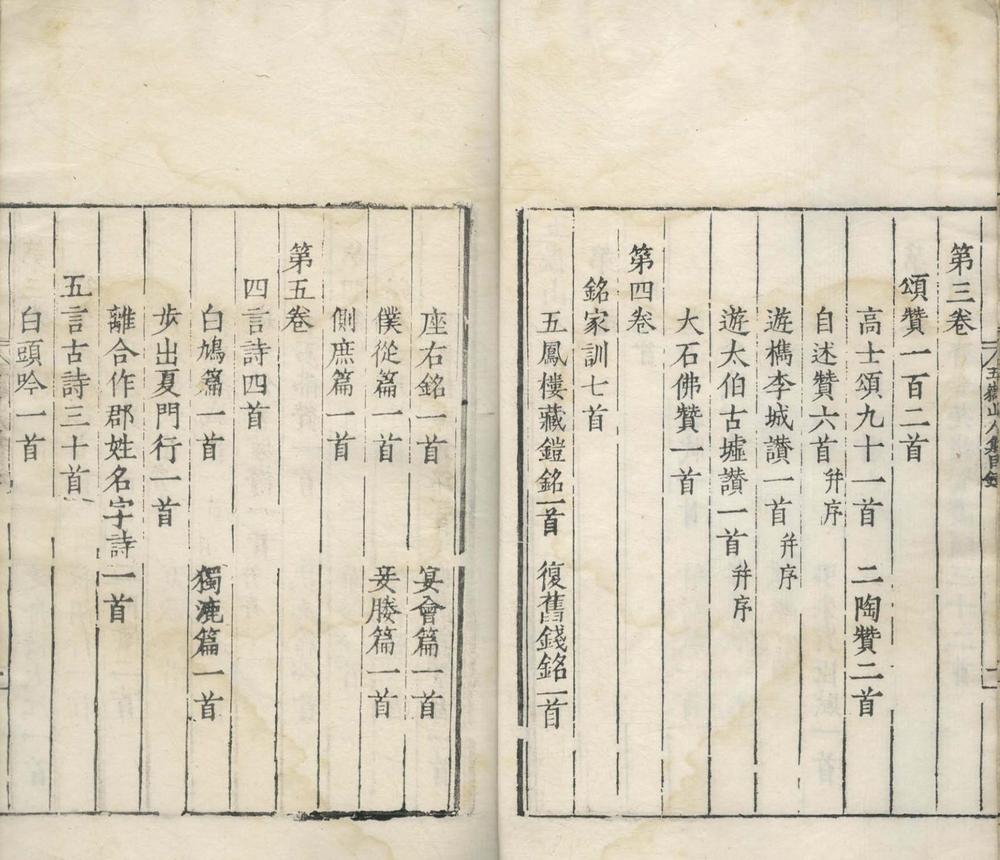 五嶽山人集目錄
第三卷
頌贊一百二首
高士頌九十一首 二陶贊二首
自述贊六首 幷序
遊檇李城讃一首 幷序
遊太伯古墟讃一首 幷序
大石佛贊一首
第四卷
銘家訓七首
五鳳樓藏鎧銘一首 復舊錢銘一首
座右銘一首 宴會篇一首
僕從篇一首 妾媵篇一首
側庶篇一首
第五卷
四言詩四首
白鳩篇一首 獨漉篇一首
步出夏門行一首
離合作郡姓名字詩一首
五言古詩三十首
白頭吟一首